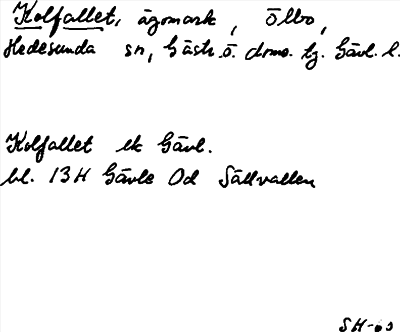 Kolfallet, ägomark, Ölbo,
Hedesunda sn, Gästr. ö. doms. tg. Gävl. l.
Kolfallet ek Gävl.
bl. 13H Gävle 0d Sällvallen
SH-60